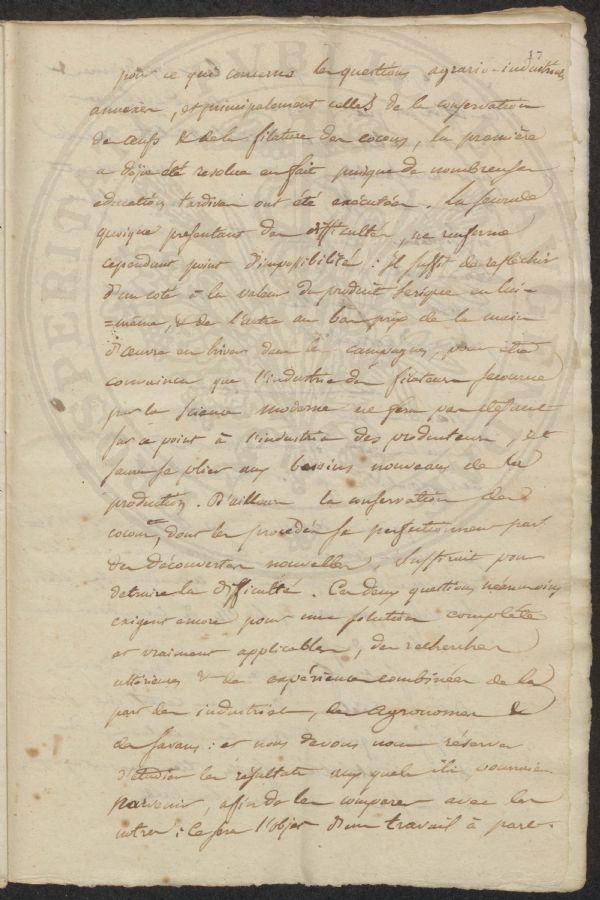 17
pour ce qui concerne les questions agrario-industrielles
annexes, et principalement celles de la conservation
des œufs & de la filature des cocons, la première
a déja été resolue en fait puisque de nombreuses
educations tardives ont été exécutées. La seconde
quoique présentant des difficultés, ne renferme
cependant point d'impossibilité : il suffit de reflechir
d'un coté à la valeur du produit serique en lui-
=même, & de l'autre au bas prix de la main
d'œuvre en hiver dans les campagnes, pour être
convaincu que l'industrie des filateurs secourue
par la science moderne ne fera pas defaut
sur ce point à l'industrie des producteurs, et
saura se plier aux besoins nouveaux de la
production. D'ailleurs la conservation des
cocons, dont les procédés se perfectionnent par
des découvertes nouvelles, suffirait pour
detruire la difficulté. Ces deux questions néanmoins
exigent encore pour une solution complète
et vraiment applicable, des recherches
ultérieures & des expériences combinées de la
part des industriels, des agronomes &
des savans : et nous devons nous réserver
d'étudier les résultats auxquels ils pourraient
parvenir, afin de les comparer avec les
notres : ce sera l'objet d'un travail à part.